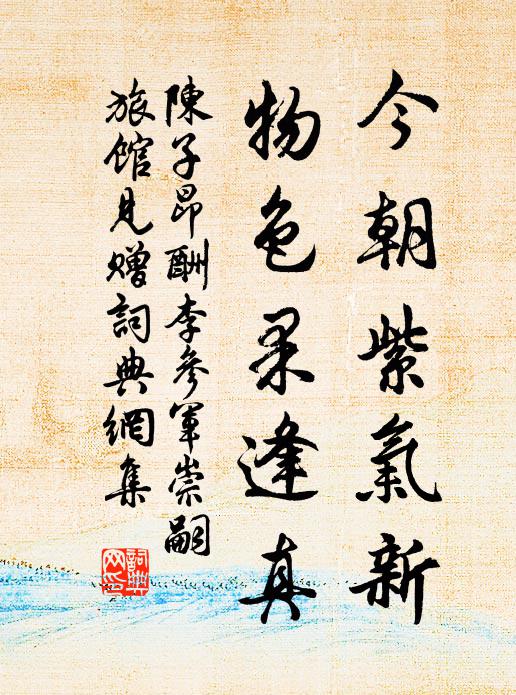 今朝紫氣新
物色果逢真
陳子昂酬李參軍崇嗣
旅館見贈詞典網集